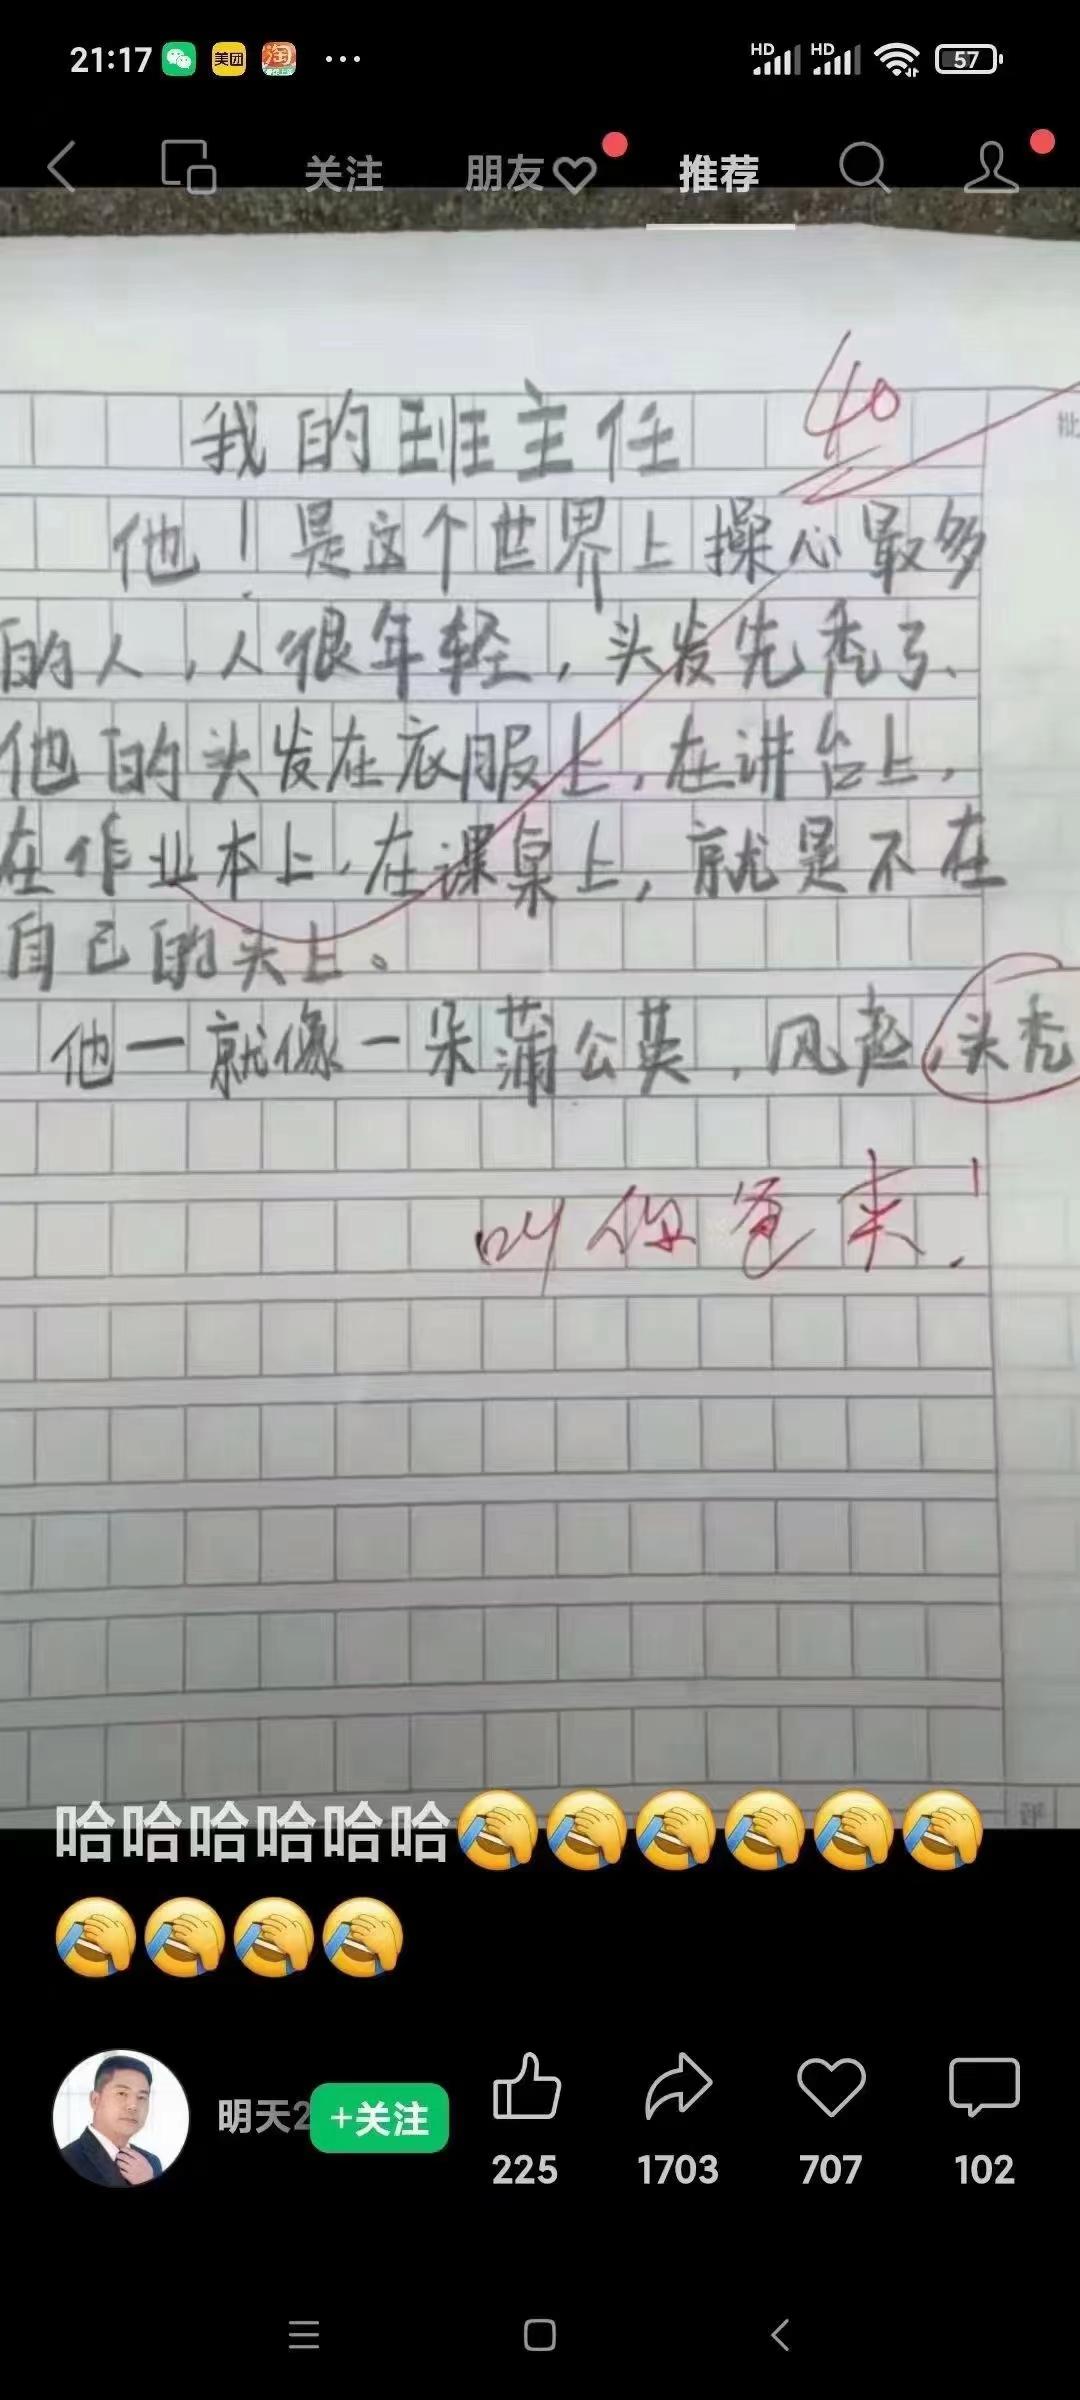 21:17
美团
淘
HD HD 57
关注 朋友 推荐
40
批
我的班主任
他！是这个世界上操心最多
的人，人很年轻，头发先秃了、
他的头发在衣服上，在讲台上，
在作业本上，在课桌上，就是不在
自己的头上。
他一就像一朵蒲公英，风起，头秃
叫你爸来！
评
哈哈哈哈哈哈🤦🤦🤦🤦🤦🤦
🤦🤦🤦🤦
明天2 +关注
225 1703 707 102